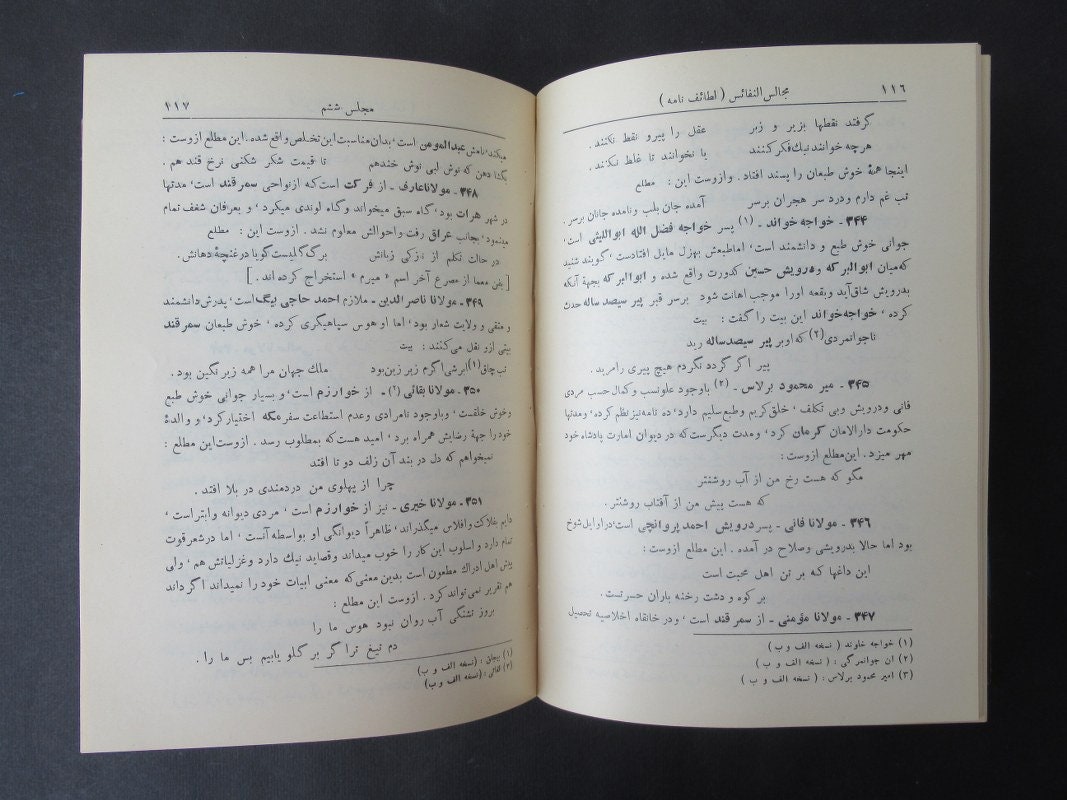 ۱۱۶ مجالس النفائس ( لطائف نامه )
گرفتند نقطها بزیر و زبر عقل را پیرو نقط نکنند .
هرچه خوانند نیك فکر کنند یا نخوانند تا غلط نکنند .
اینجا همهٔ خوش طبعان را پسند افتاد . وازوست این : مطلع
تب غم دارم ودرد سر هجران برسر آمده جان بلب ونامده جانان برسر .
۳۴۴ - خواجه خواند - (۱) پسر خواجه فضل الله ابواللیثی است ،
جوانی خوش طبع و دانشمند است ، اماطبعش بهزل مایل افتادست ، گویند شنید
که میان ابوالبر که ودرویش حسین کدورت واقع شده و ابوالبر که بجهة آنکه
بدرویش شاق آید وبقعه اورا موجب اهانت شود برسر قبر پیر سیصد ساله حدث
کرده ، خواجه خواند این بیت را گفت : بیت
ناجوانمردی (۲) که اوبر پیر سیصدساله رید
پیر اگر گردد نگردم هیچ پیری رامرید .
۳۴۵ - میر محمود برلاس - (۳) باوجود علونسب وکمال حسب مردی
فانی ودرویش وبی تکلف ، خلق کریم وطبع سلیم دارد ، ده نامه نیز نظم کرده ، ومدتها
حکومت دارالامان کرمان کرد ، ومدت دیگرست که در دیوان امارت پادشاه خود
مهر میزد . این مطلع ازوست :
مگو که هست رخ من از آب روشنتر
که هست پیش من از آفتاب روشنتر .
۳۴۶ - مولانا فانی - پسر درویش احمد پروانچی است دراوایل شوخ
بود اما حالا بدرویشی وصلاح در آمده . این مطلع ازوست :
این داغها که بر تن اهل محبت است
بر کوه و دشت رخنه باران حسرتست .
۳۴۷ - مولانا مؤمنی - از سمرقند است ، ودر خانقاه اخلاصیه تحصیل
(۱) خواجه خاوند ( نسخه الف و ب )
(۲) ان جوانمرگی : ( نسخه الف و ب )
(۳) امیر محمود برلاس : ( نسخه الف و ب )
مجلس ششم ۱۱۷
میکند ، نامش عبدالمومن است ، بدان مناسبت این تخلص واقع شده . این مطلع ازوست :
بگشا دهن که نوش لبی نوش خندهم تا قیمت شکر شکنی نرخ قند هم .
۳۴۸ - مولانا عاری - از فرکت است که ازنواحی سمرقند است ، مدتها
در شهر هرات بود ، گاه سبق میخواند وگاه لوندی میکرد ، و بعرافان شغف تمام
مینمود ، بجانب عراق رفت واحوالش معلوم نشد . ازوست این : مطلع
در حالت تکلم از نازکی زبانش برگ گلیست گویا درغنچهٔ دهانش .
[ بفن معما از مصرع آخر اسم « میرم » استخراج کرده اند . ]
۳۴۹ - مولانا ناصر الدین - ملازم احمد حاجی بیگ است ، پدرش دانشمند
و متقی و ولایت شعار بود ، اما او هوس سپاهیگری کرده ، خوش طبعان سمرقند
بیتی ازو نقل می کنند : بیت
تپ چاق (۱) ابرشی اگرم زیر زین بود ملك جهان مرا همه زیر نگین بود .
۳۵۰ - مولانا بقائی - (۲) از خوارزم است ، و بسیار جوانی خوش طبع
وخوش خلقست ، وباوجود نامرادی وعدم استطاعت سفر مکه اختیار کرد ، و والدهٔ
خود را جهة رضایش همراه برد ، امید هست که بمطلوب رسد . ازوست این مطلع :
نمیخواهم که دل در بند آن زلف دو تا افتد
چرا از پهلوی من دردمندی در بلا افتد .
۳۵۱ - مولانا خیری - نیز از خوارزم است ، مردی دیوانه وابتر است ،
دایم بفلاکت وافلاس میگذراند ، ظاهراً دیوانگی او بواسطه آنست ، اما درشعر قوت
تمام دارد و اسلوب این کار را خوب میداند وقصاید نیك دارد وغزلیاتش هم ، ولی
پیش اهل ادراك مطعون است بدین معنی که معنی ابیات خود را نمیداند اگر داند
هم تقریر نمی تواند کرد . ازوست این مطلع :
بروز تشنگی آب روان نبود هوس ما را
دم تیغ تراگر بر گلو یابیم بس ما را .
(۱) بیچاق : ( نسخه الف و ب )
(۲) (نسخه الف و ب)